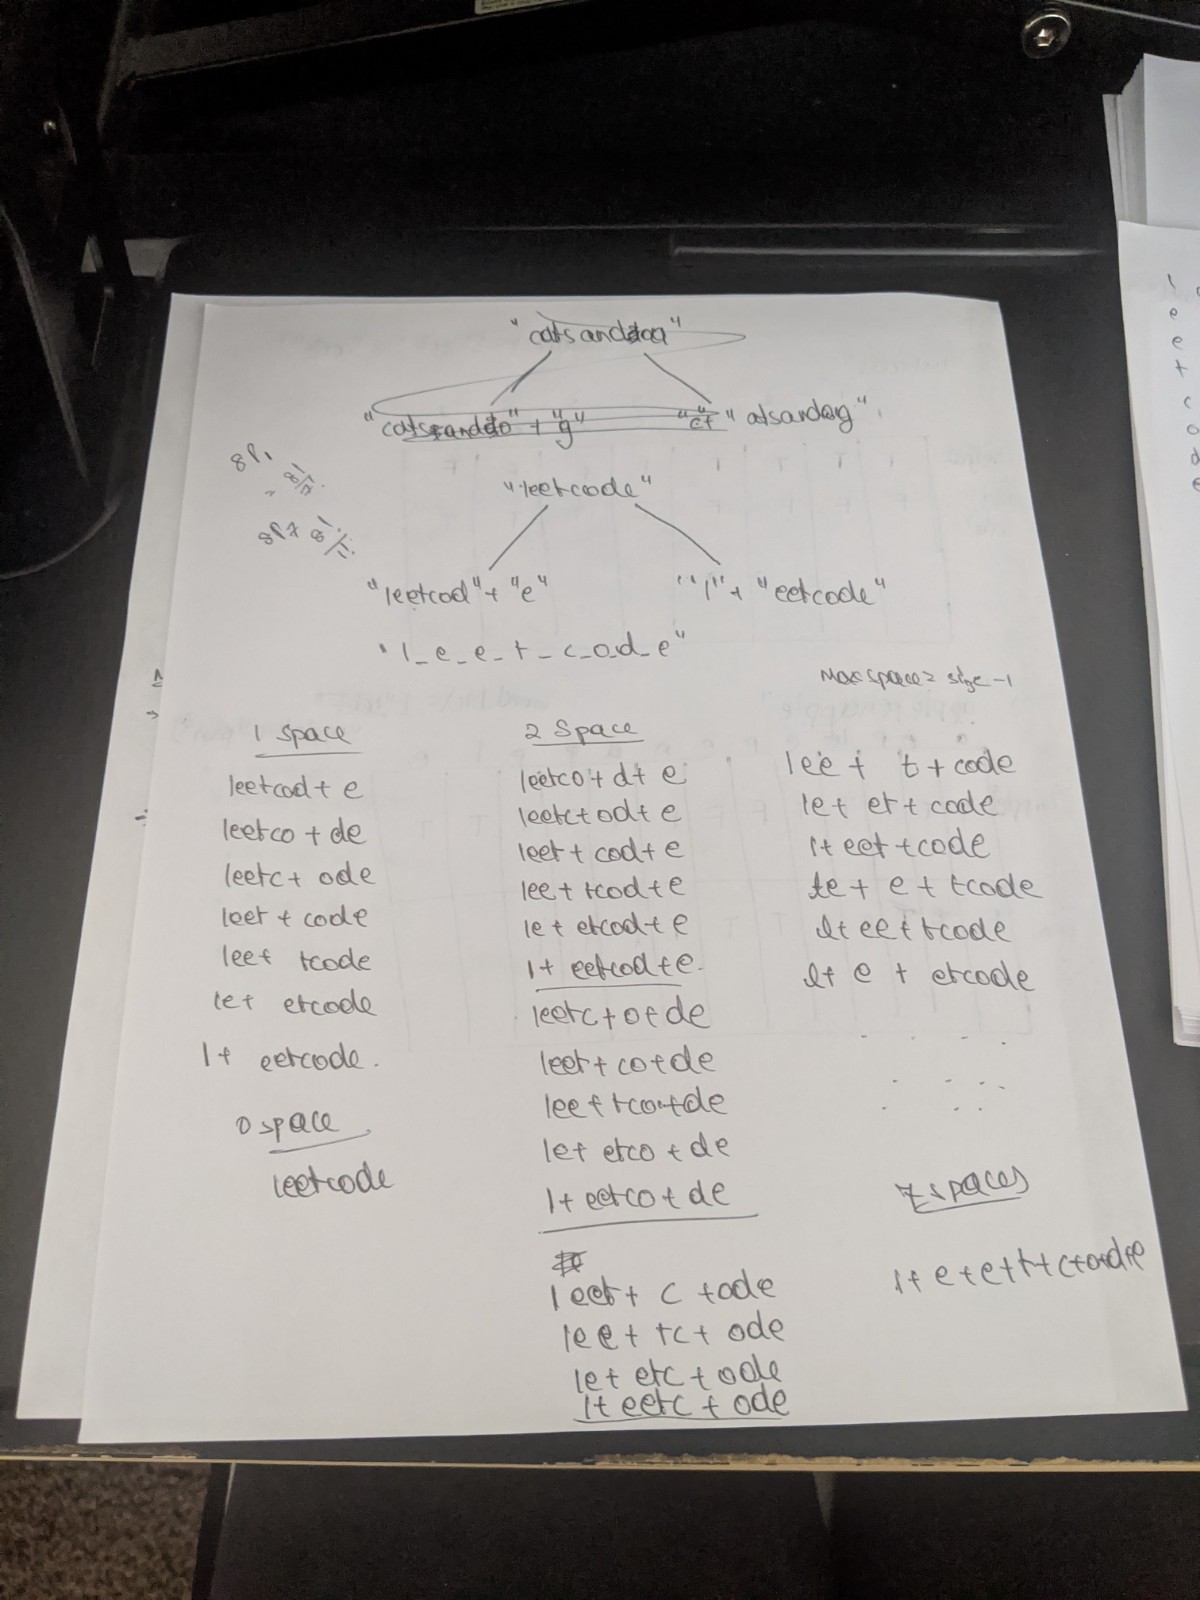 "catsanddog"
"catsanddo" + "g" "c+" atsandog"
"leetcode"
"leetcod" + "e" "l" + "eetcode"
"l_e_e_t_c_o_d_e"
Max space = size - 1
1 space
leetcod + e
leetco + de
leetc + ode
leet + code
lee + tcode
le + etcode
l + eetcode.
0 space
leetcode
2 Space
leetco + d + e
leetc + od + e
leet + cod + e
lee + tcod + e
le + etcod + e
l + eetcod + e.
leetc + o + de
leet + co + de
lee + tco + de
le + etco + de
l + eetco + de
leet + c + ode
lee + tc + ode
le + etc + ode
l + eetc + ode
lee + t + code
le + et + code
l + eet + code
le + e + tcode
l + ee + tcode
l + e + etcode
7 spaces
l + e + e + t + c + o + d + e
l
e
e
t
c
o
d
e